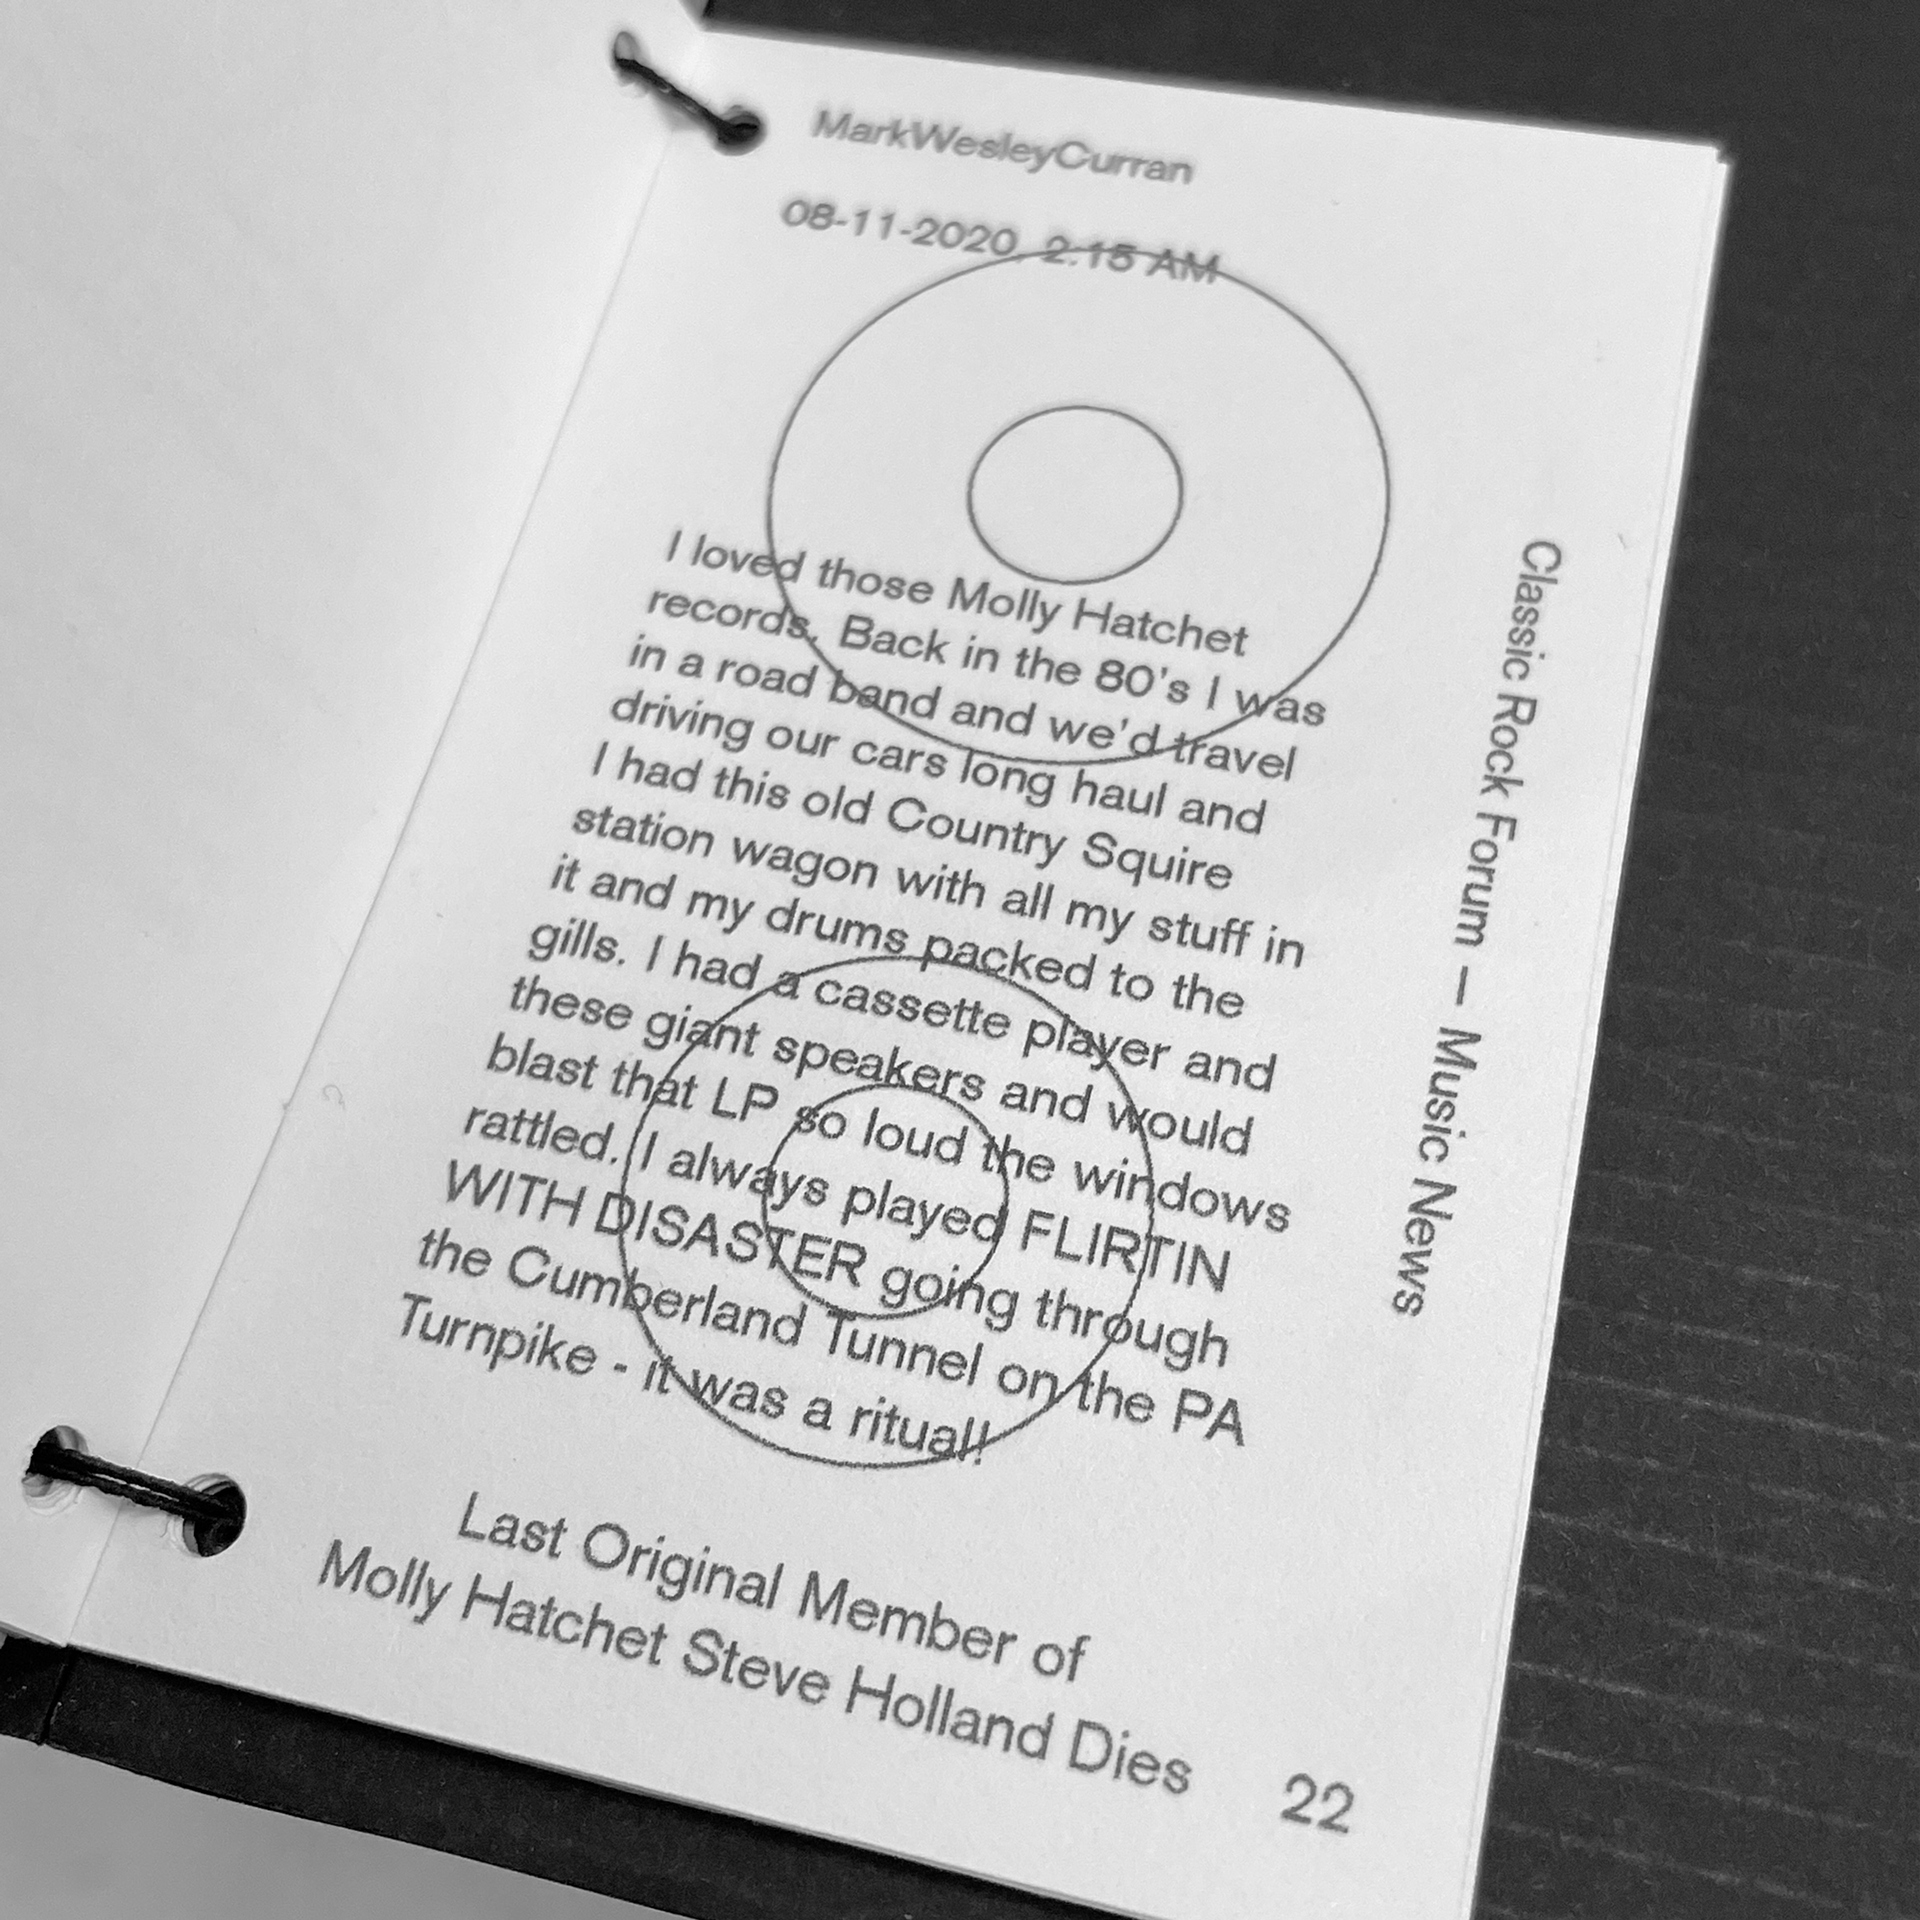 MarkWesleyCurran
08-11-2020, 2:15 AM
I loved those Molly Hatchet
records. Back in the 80's I was
in a road band and we'd travel
driving our cars long haul and
I had this old Country Squire
station wagon with all my stuff in
it and my drums packed to the
gills. I had a cassette player and
these giant speakers and would
blast that LP so loud the windows
rattled. I always played FLIRTIN
WITH DISASTER going through
the Cumberland Tunnel on the PA
Turnpike - it was a ritual!
Last Original Member of
Molly Hatchet Steve Holland Dies
22
Classic Rock Forum — Music News